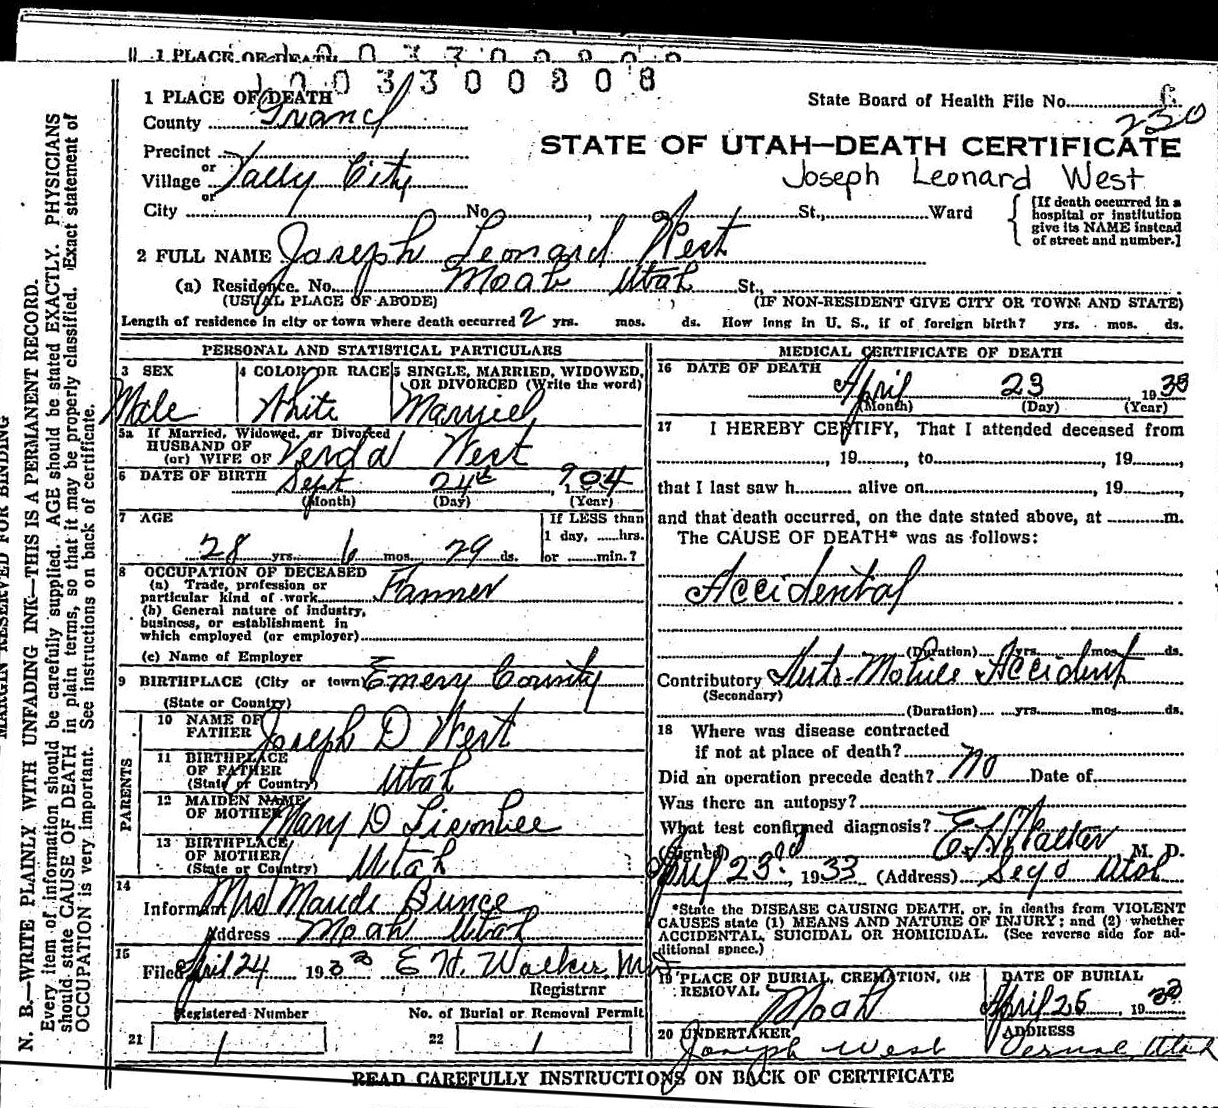 1 PLACE OF DEATH
1003300808
1 PLACE OF DEATH
State Board of Health File No.
230
County Grand
STATE OF UTAH—DEATH CERTIFICATE
Precinct
or
Village Vally City
Joseph Leonard West
or
City No. , St., Ward
[If death occurred in a
hospital or institution
give its NAME instead
of street and number.]
2 FULL NAME Joseph Leonard West
(a) Residence. No. Moab Utah St.,
(USUAL PLACE OF ABODE) (IF NON-RESIDENT GIVE CITY OR TOWN AND STATE)
Length of residence in city or town where death occurred 2 yrs. mos. ds. How long in U. S., if of foreign birth? yrs. mos. ds.
PERSONAL AND STATISTICAL PARTICULARS
3 SEX
Male
4 COLOR OR RACE
White
5 SINGLE, MARRIED, WIDOWED,
OR DIVORCED (Write the word)
Married
5a If Married, Widowed, or Divorced
HUSBAND OF
(or) WIFE OF Verda West
6 DATE OF BIRTH Sept 24th, 1904
(Month) (Day) (Year)
7 AGE
28 yrs. 6 mos. 29 ds.
If LESS than
1 day, hrs.
or min.?
8 OCCUPATION OF DECEASED
(a) Trade, profession or
particular kind of work Farmer
(b) General nature of industry,
business, or establishment in
which employed (or employer)
(c) Name of Employer
9 BIRTHPLACE (City or town) Emery County
(State or Country)
PARENTS
10 NAME OF
FATHER Joseph D West
11 BIRTHPLACE
OF FATHER
(State or Country) Utah
12 MAIDEN NAME
OF MOTHER Mary D
13 BIRTHPLACE
OF MOTHER
(State or Country) Utah
14
Informant Mrs Maude Bunce
Address Moab Utah
15
Filed April 24 1933 E H Walker, MD
Registrar
Registered Number No. of Burial or Removal Permit
21 1 22 1
MEDICAL CERTIFICATE OF DEATH
16 DATE OF DEATH
April 23 1933
(Month) (Day) (Year)
17 I HEREBY CERTIFY, That I attended deceased from
, 19 , to , 19 ,
that I last saw h alive on , 19 ,
and that death occurred, on the date stated above, at m.
The CAUSE OF DEATH* was as follows:
Accidental
(Duration) yrs. mos. ds.
Contributory Auto-Mobile Accident
(Secondary)
(Duration) yrs. mos. ds.
18 Where was disease contracted
if not at place of death?
Did an operation precede death? No Date of
Was there an autopsy?
What test confirmed diagnosis?
(Signed) E H Walker M. D.
April 23rd, 1933 (Address) Sego Utah
*State the DISEASE CAUSING DEATH, or, in deaths from VIOLENT
CAUSES state (1) MEANS AND NATURE OF INJURY; and (2) whether
ACCIDENTAL, SUICIDAL OR HOMICIDAL. (See reverse side for ad-
ditional space.)
19 PLACE OF BURIAL, CREMATION, OR
REMOVAL Moab
DATE OF BURIAL
April 25, 1933
20 UNDERTAKER
Joseph West
ADDRESS
Vernal, Utah
READ CAREFULLY INSTRUCTIONS ON BACK OF CERTIFICATE
MARGIN RESERVED FOR BINDING
N. B.—WRITE PLAINLY WITH UNFADING INK—THIS IS A PERMANENT RECORD.
Every item of information should be carefully supplied. AGE should be stated EXACTLY. PHYSICIANS
should state CAUSE OF DEATH in plain terms, so that it may be properly classified. Exact statement of
OCCUPATION is very important. See instructions on back of certificate.